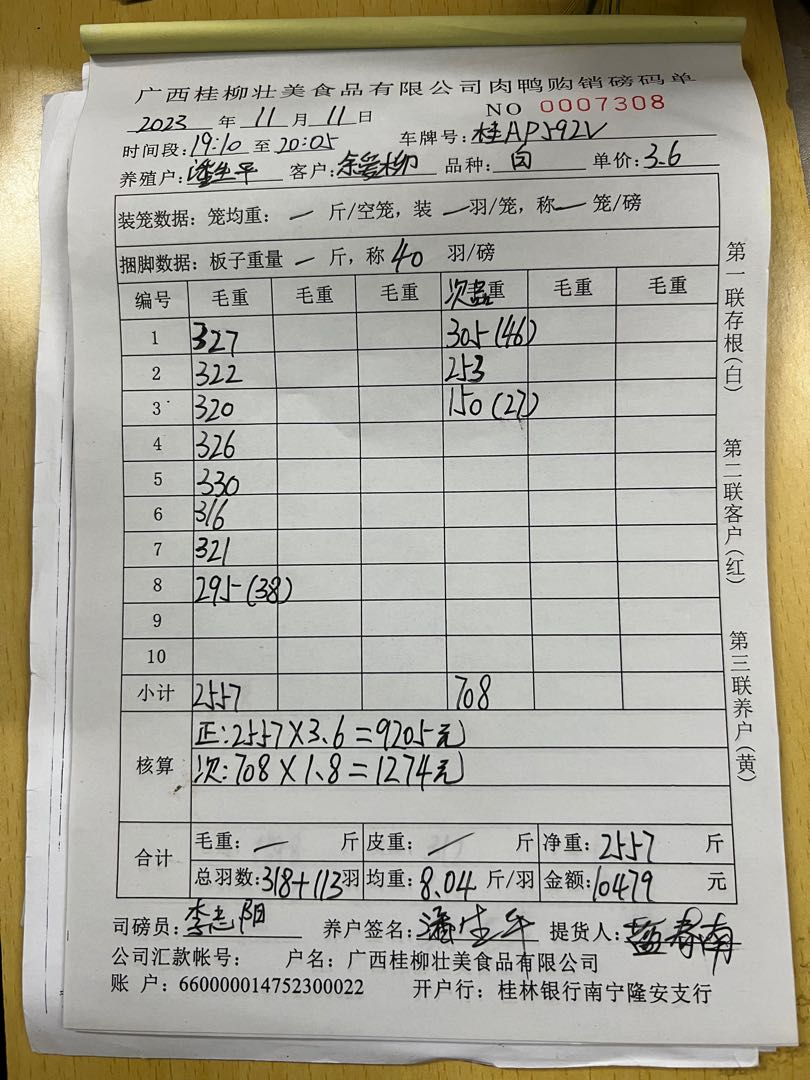 广西桂柳壮美食品有限公司肉鸭购销磅码单
2023 年 11 月 11 日 NO 0007308
时间段:19:10 至 20:05 车牌号:桂AP592V
养殖户:潘生平 客户:余爱柳 品种:白 单价:3.6
装笼数据:笼均重:— 斤/空笼,装 — 羽/笼,称 — 笼/磅
捆脚数据:板子重量 — 斤,称 40 羽/磅
编号 毛重 毛重 毛重 次品重 毛重 毛重
1 327 305(46)
2 322 253
3 320 150(27)
4 326
5 330
6 316
7 321
8 295(38)
9
10
小计 2557 708
核算 正:2557×3.6=9205元
次:708×1.8=1274元
合计 毛重:— 斤 皮重:— 斤 净重:2557 斤
总羽数:318+113羽 均重:8.04 斤/羽 金额:10479 元
司磅员:李志阳 养户签名:潘生平 提货人:蓝春南
公司汇款帐号: 户名:广西桂柳壮美食品有限公司
账 户:660000014752300022 开户行:桂林银行南宁隆安支行
第一联存根(白)
第二联客户(红)
第三联养户(黄)